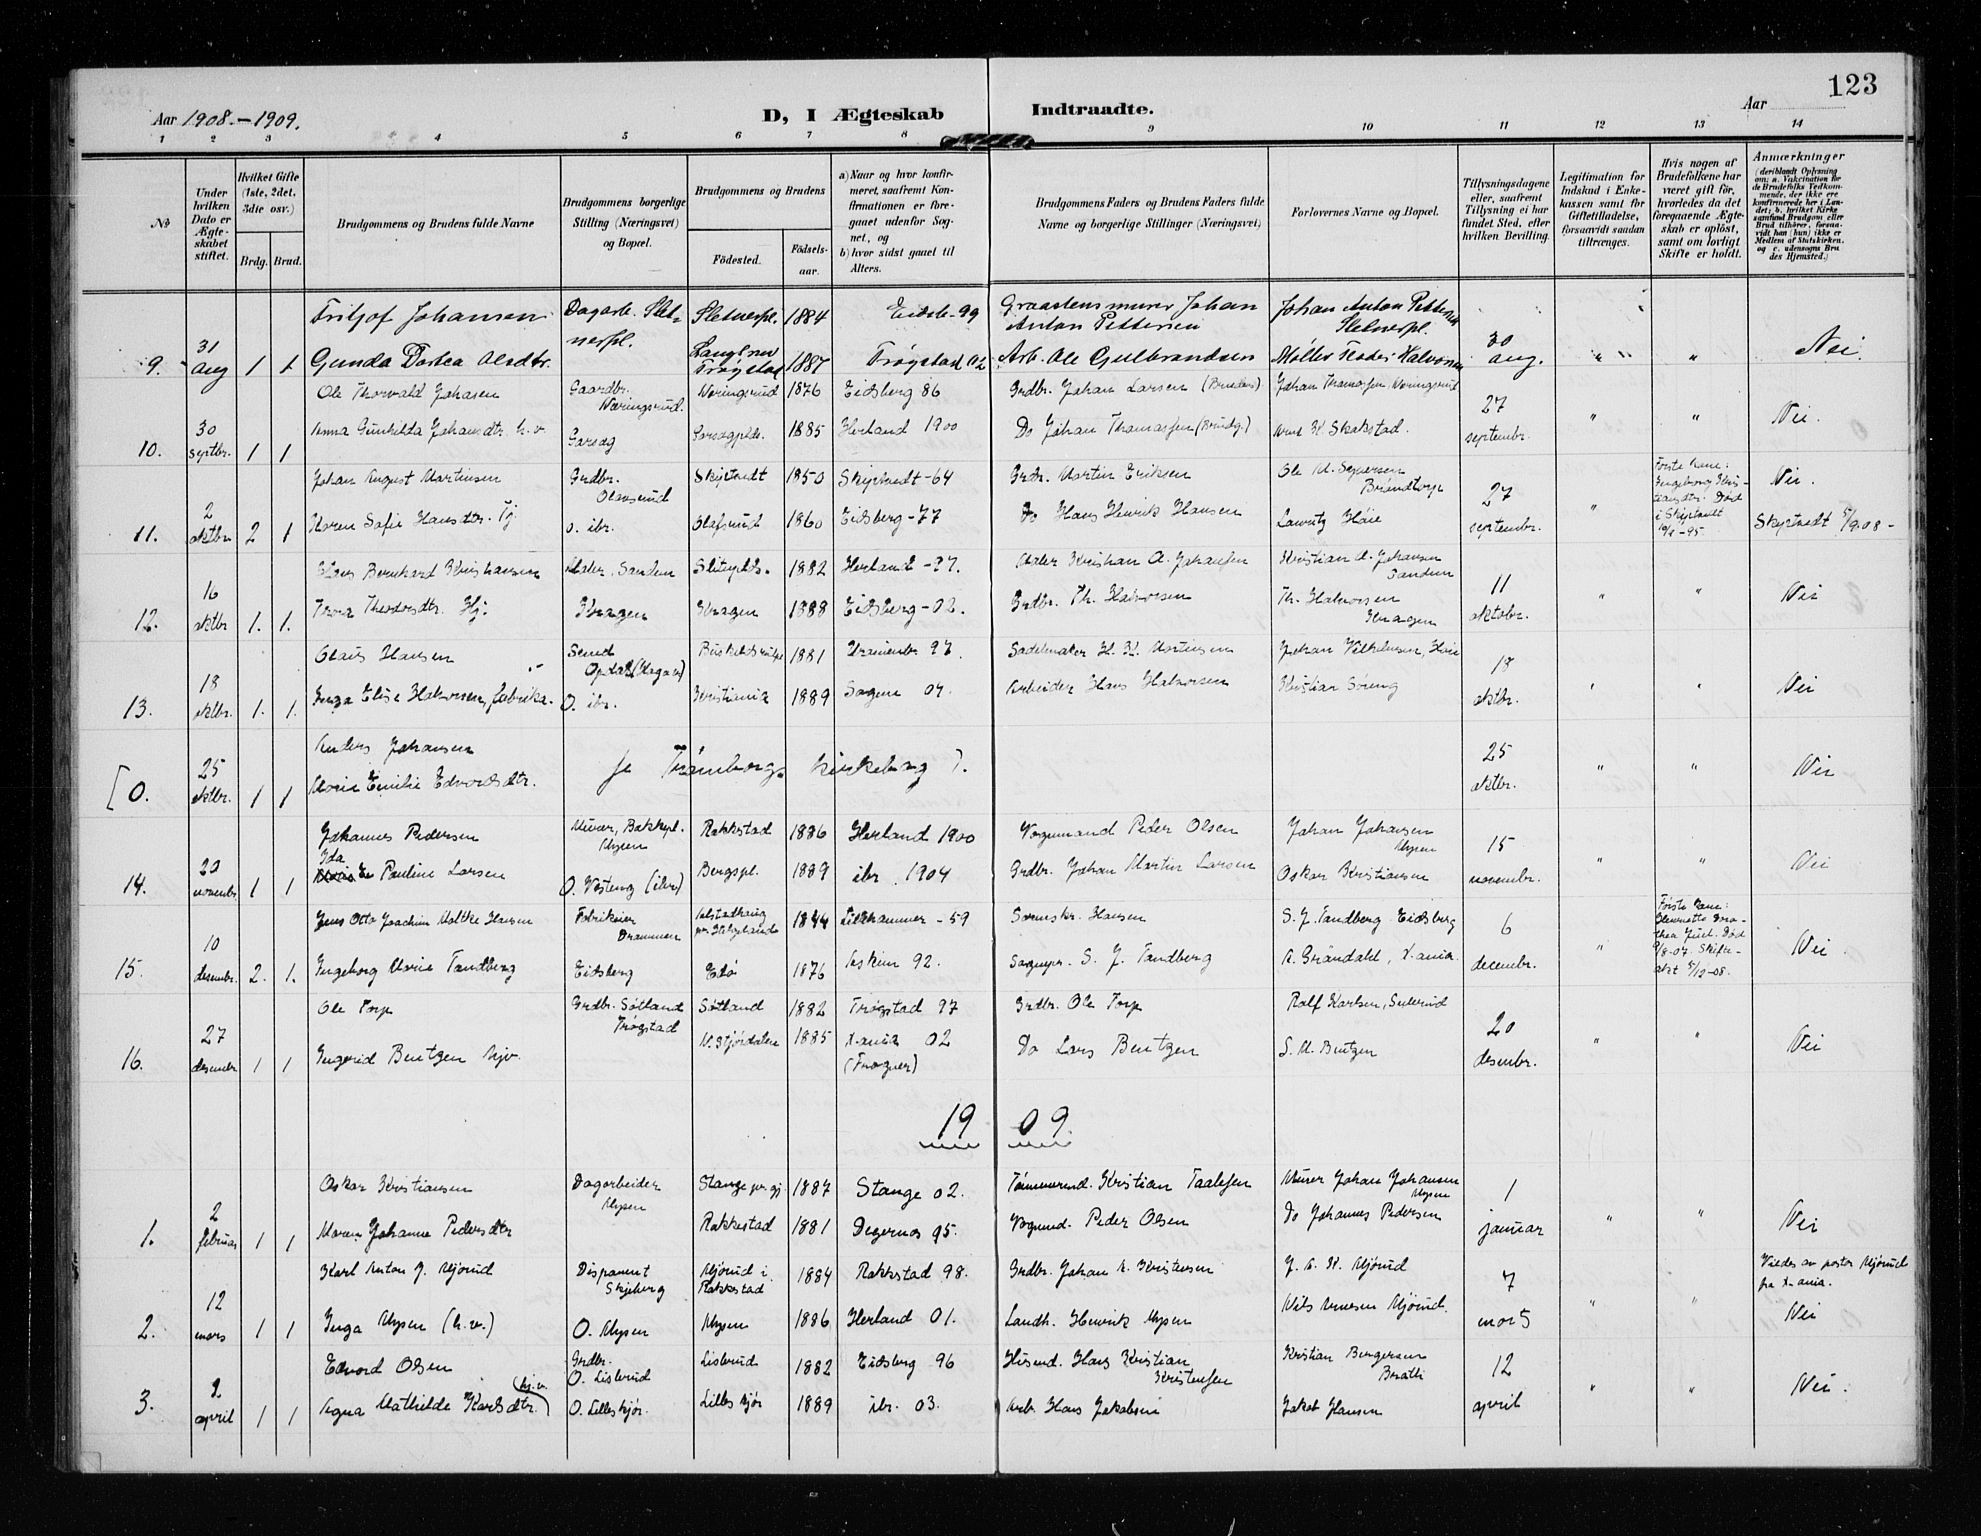 123
Aar 1908.-1909.
D, I Ægteskab Indtraadte.
Aar
1 2 3 4 5 6 7 8 9 10 11 12 13 14
№
Under hvilken Dato er Ægteskabet stiftet.
Hvilket Gifte (1ste, 2det, 3die osv.)
Brdg. Brud.
Brudgommens og Brudens fulde Navne
Brudgommens borgerlige Stilling (Næringsvei) og Bopæl.
Brudgommens og Brudens
Födested.
Födselsaar.
a) Naar og hvor konfirmeret, saafremt Konfirmationen er foregaaet udenfor Sognet, og
b) hvor sidst gaaet til Alters.
Brudgommens Faders og Brudens Faders fulde Navne og borgerlige Stillinger (Næringsvei)
Forlovernes Navne og Bopæl.
Tillysningsdagene eller, saafremt Tillysning ei har fundet Sted, efter hvilken Bevilling.
Legitimation for Indskud i Enkekassen samt for Giftetilladelse, forsaavidt saadan tiltrænges.
Hvis nogen af Brudefolkene har været gift för, hvorledes da det foregaaende Ægteskab er oplöst, samt om lovligt Skifte er holdt.
Anmærkninger
(deriblandt Oplysning om: a. Vakcination för de Brudefolks Vedkommende, der ikke ere konfirmerede her i Landet; b. hvilket Kirkesamfund Brudgom eller Brud tilhörer, forsaavidt han (hun) ikke er Medlem af Statskirken, og c. udensogns Brudes Hjemsted.)
Fritjof Johansen Dagarb. Slet- Sletnerpl. 1884 Eidsb-99 Graastensmurer Johan Johan Anton Pettersen
nerpl. Anton Pettersen Sletnerpl.
9. 31 aug 1 1 Gunda Dortea Olsdtr. Trøgstad 1887 Trøgstad 02 Arb. Ole Gulbrandsen Møller Teodor Halvorsen 30 aug. " " " Nei.
Ole Thorvald Johansen Gaardbr. Næringsrud. Næringsrud 1876 Eidsberg 86 Grdbr. Johan Larsen (Brudens) Johan Thomassen, Næringsrud
10. 30 septbr. 1 1 Anna Gunhilda Johansdtr. h.v. 1885 Herland 1900 Do Johan Thomassen (Brudg.) Skakstad. 27 septembr. " " Nei.
Johan August Martinsen Grdbr. Olavsrud Skiptvedt 1850 Skiptvedt-64 Grdbr. Martin Eriksen Ole M. Syversen Brandtorp
11. 2 oktbr 2 1 Karen Sofie Hansdtr. Tj o. ibr. Olafsrud 1860 Eidsberg-77 Do Hans Henrik Hansen Lauritz Høie 27 septembr. " Skiptvedt 5/9.08-
Første kone: Død i Skiptvedt -95 Nei.
Hans Bernhard Kristiansen Maler, Sandem 1882 Herland-97. Maler Kristian A. Johansen Kristian A. Johansen Sandem
12. 16 oktbr 1. 1. Thora Theodorsdtr. Hj. Kragen Kragen 1888 Eidsberg-02. Grdbr. Th. Halvorsen Th. Halvorsen Kragen 11 oktobr. " " Nei
Olaus Hansen Smed Opsal (Hagan) 1881 97. Sadelmaker H. K. Martinsen Johan Vilhelmsen, Høie
13. 18 oktbr. 1. 1. Inga Elise Halvorsen, fabrika. O. ibr. Kristiania 1889 Sagene 04. Arbeider Hans Halvorsen Kristian Søreng 18 oktbr. " " Nei
Anders Johansen
[0. 25 oktbr. 1 1 Marie Emilie Edvardsdtr. Se Trømborgs kirkebog ]. 25 oktbr. " " Nei
Johannes Pedersen Murer, Bakkepl. Mysen Rakkestad 1886 Herland 1900 Vognmand Peder Olsen Johan Johansen Mysen
14. 20 novembr 1 1 Ida Pauline Larsen O. Vesteng (ibr) Bergspl. 1889 ibr. 1904 Grdbr. Johan Martin Larsen Oskar Kristiansen 15 novembr. " " Nei
Jens Otto Joachim Moltke Hansen Fabrikeier Drammen Alstadhaug paa Helgeland 1844 Lillehammer-59 Sorenskr. Hansen S. J. Tandberg Eidsberg
15. 10 desembr. 2. 1. Ingeborg Marie Tandberg Eidsberg 1876 Askim 92. Sognepr. S. J. Tandberg A. Grøndahl, X.ania. 6 decembr. " Nei.
Første kone: Henriette Dorothea Juel. Død 9/8-07. Skifteakt 5/12-08.
Ole Torp Grdbr. Søtland Trøgstad Søtland 1882 Trøgstad 97 Grdbr. Ole Torp Ralf Karlsen, Sulerud
16. 27 desembr 1 1 Ingerid Bentzen hjv. N. Stjørdalen 1885 X.ania 02 (Frogner) Do Lars Bentzen S. M. Bentzen 20 desembr. " " Nei
1909.
Oskar Kristiansen Dagarbeider Mysen Stange pr. gj. 1887 Stange 02. Tømmermd. Kristian Taalesen Murer Johan Johansen Mysen
1. 2 februar 1 1 Maren Johanne Pedersdtr Rakkestad 1881 Degernes 95. Vognmd. Peder Olsen Do Johannes Pedersen 1 januar " " Nei
Karl Anton J. Mjørud Disponent Skjeberg Mjørud i Rakkestad 1884 Rakkestad 98. Grdbr. Johan A. Kristensen J. A. K. Mjørud Viedes av pastor Mjørud fra X-ania.
2. 12 mars 1 1 Inga Mysen (h.v.) O. Mysen Mysen 1886 Herland 01. Landh. Henrik Mysen Nils Arnesen Mjørud. 7 mars " " Nei
Edvard Olsen Grdbr. O. Lislerud Lislerud 1882 Eidsberg 96 Husmd. Hans Kristian Kristensen Kristian Borgersen Bratli
3. 9. april 1 1 Agna Mathilde Karlsdtr. (hj.v.) O. Lilleskjør. Lilleskjør 1889 ibr. 03. Arb. Hans Jakobsen Jakob Hansen 12 april " " Nei.